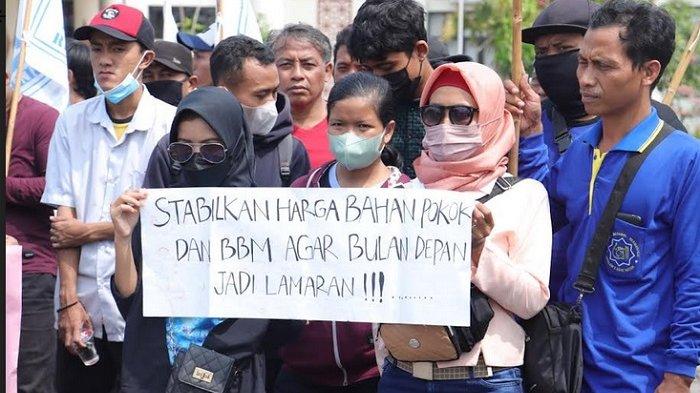 STABILKAN HARGA BAHAN POKOK
DAN BBM AGAR BULAN DEPAN
JADI LAMARAN !!! .........